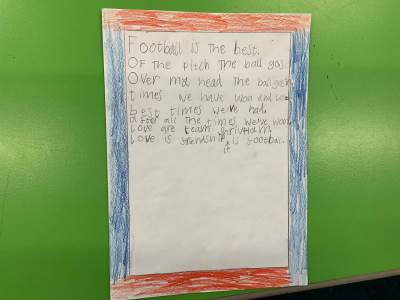 Football is the best.
Of the pitch the ball gos
Over my head the ball gos
times we have won and
best times we've had
after all the times we've won
love are team
love is is football
it